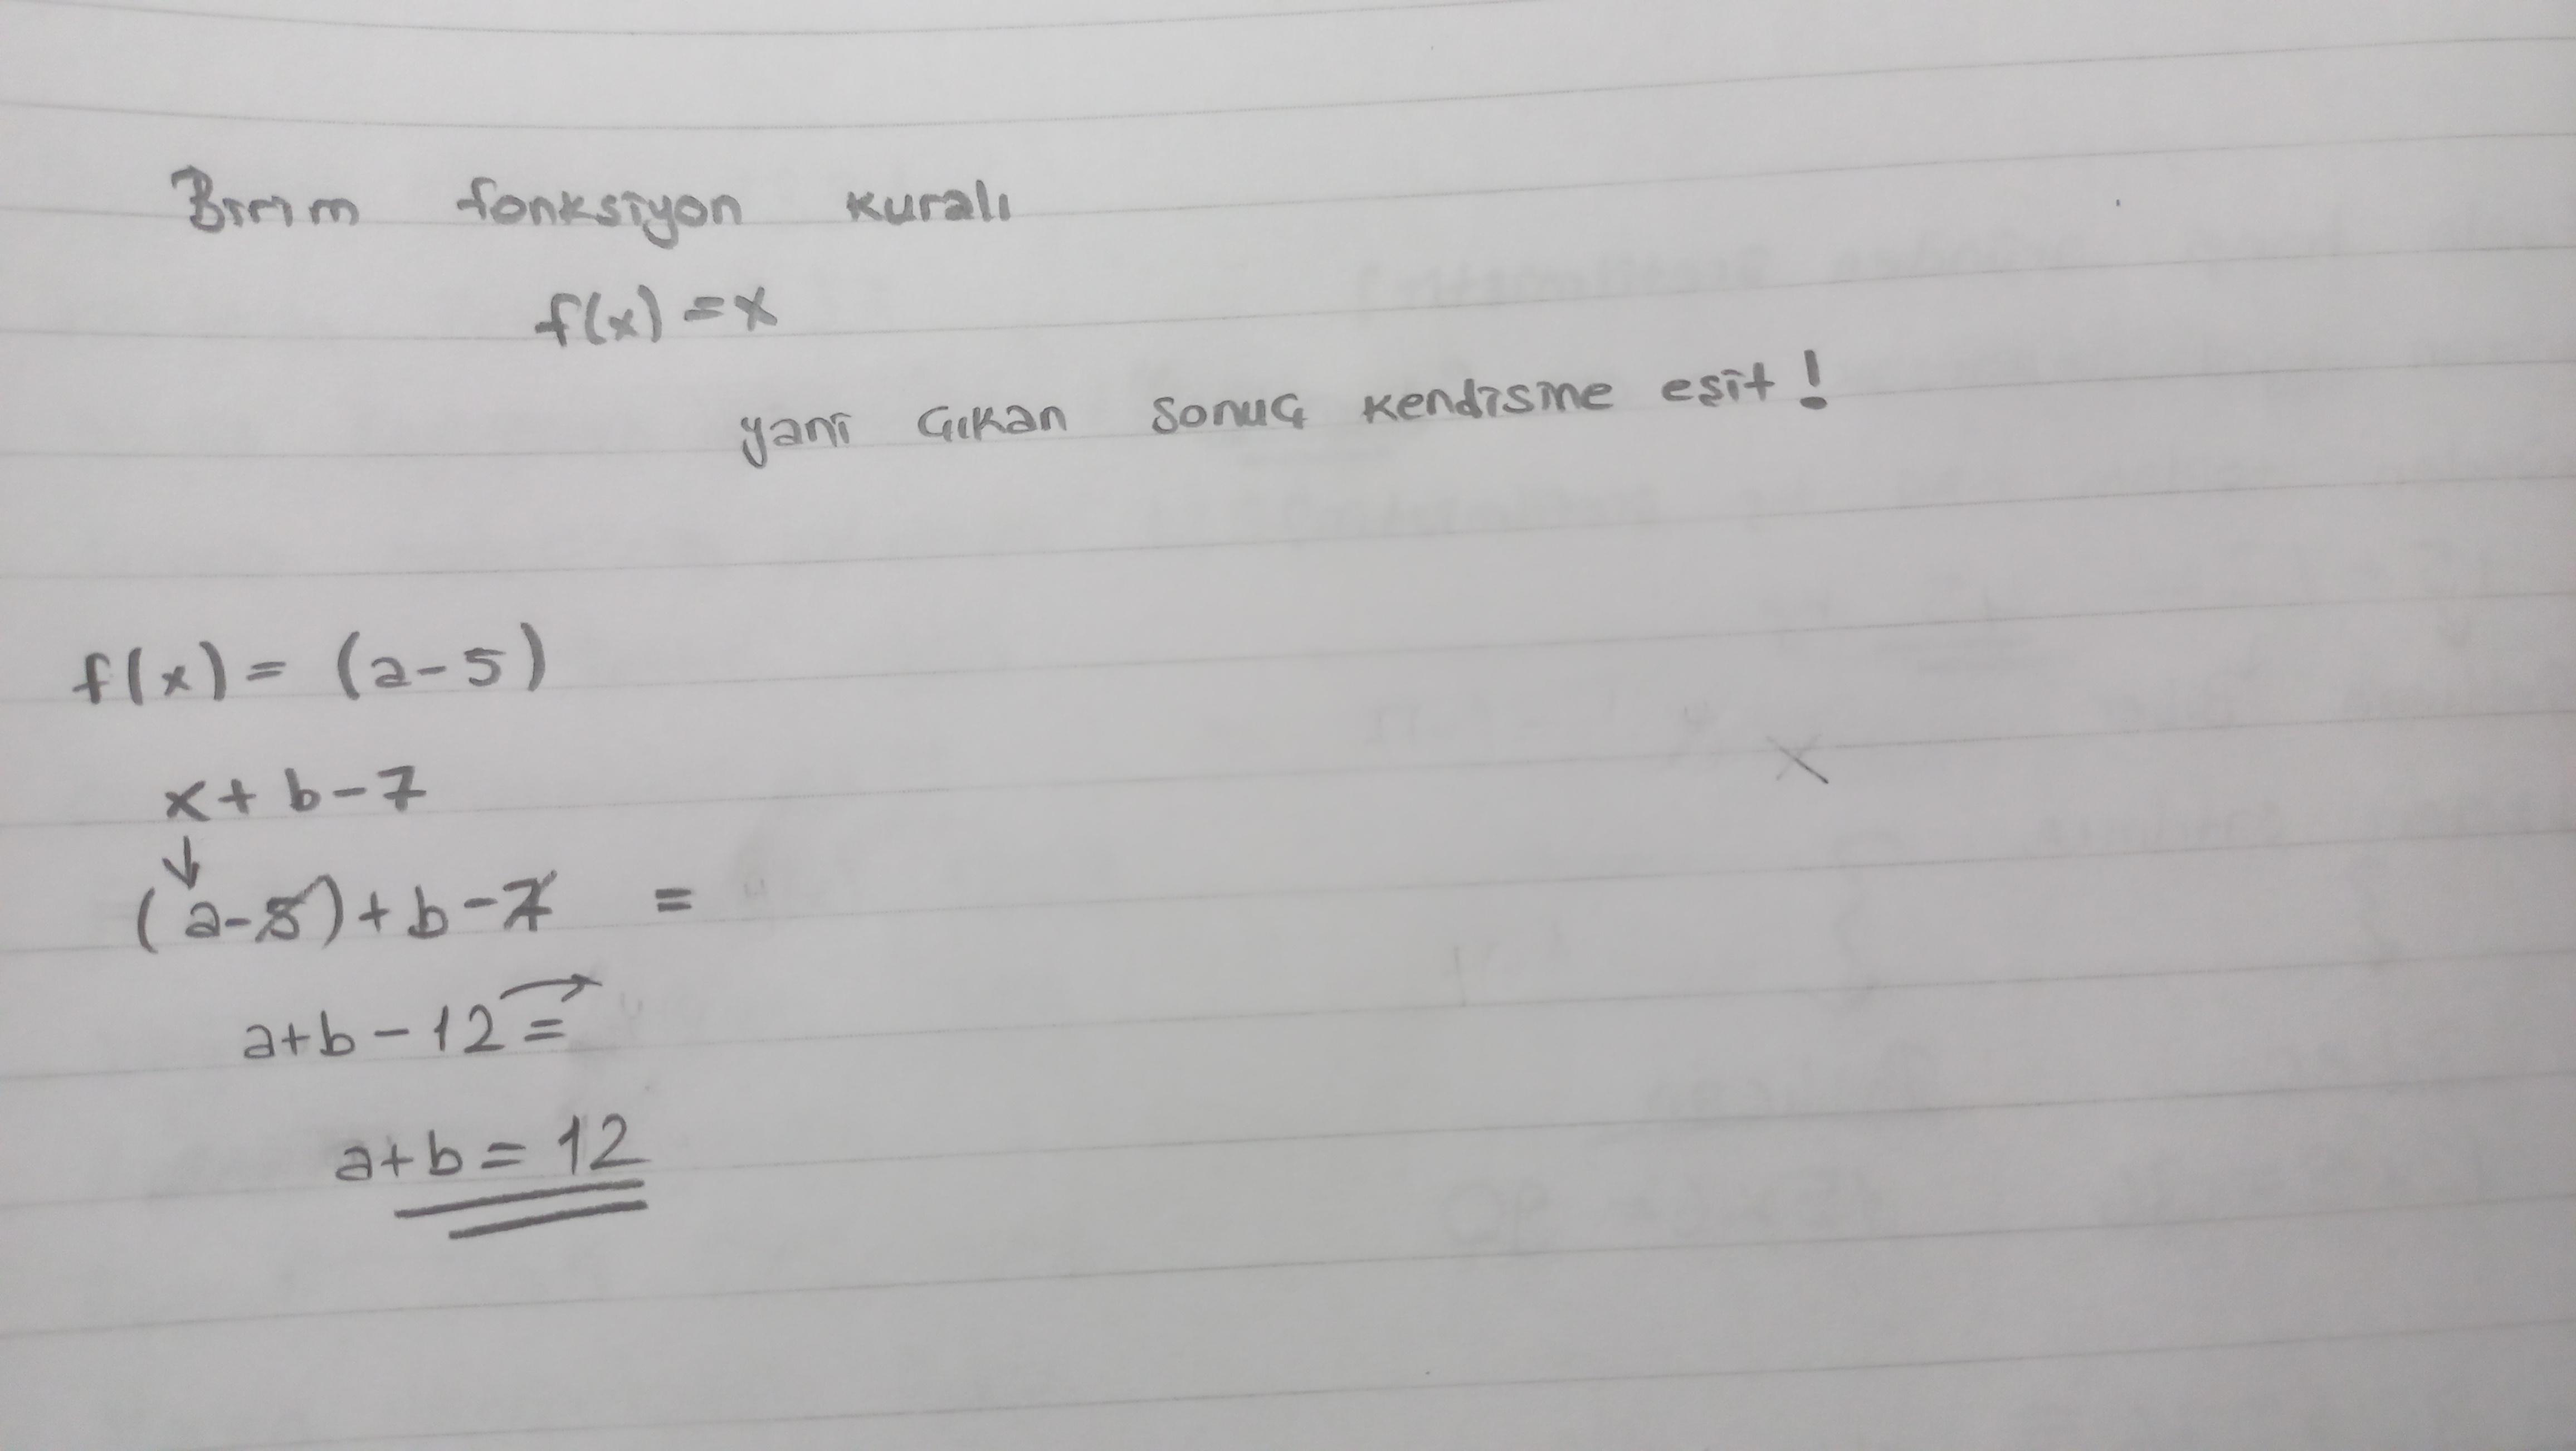 Birim fonksiyon kuralı
f(x) = x
yani çıkan sonuç kendisine eşit!
f(x) = (a-5)
x + b - 7
↓
(a-5) + b - 7 =
a+b - 12 =
a+b = 12